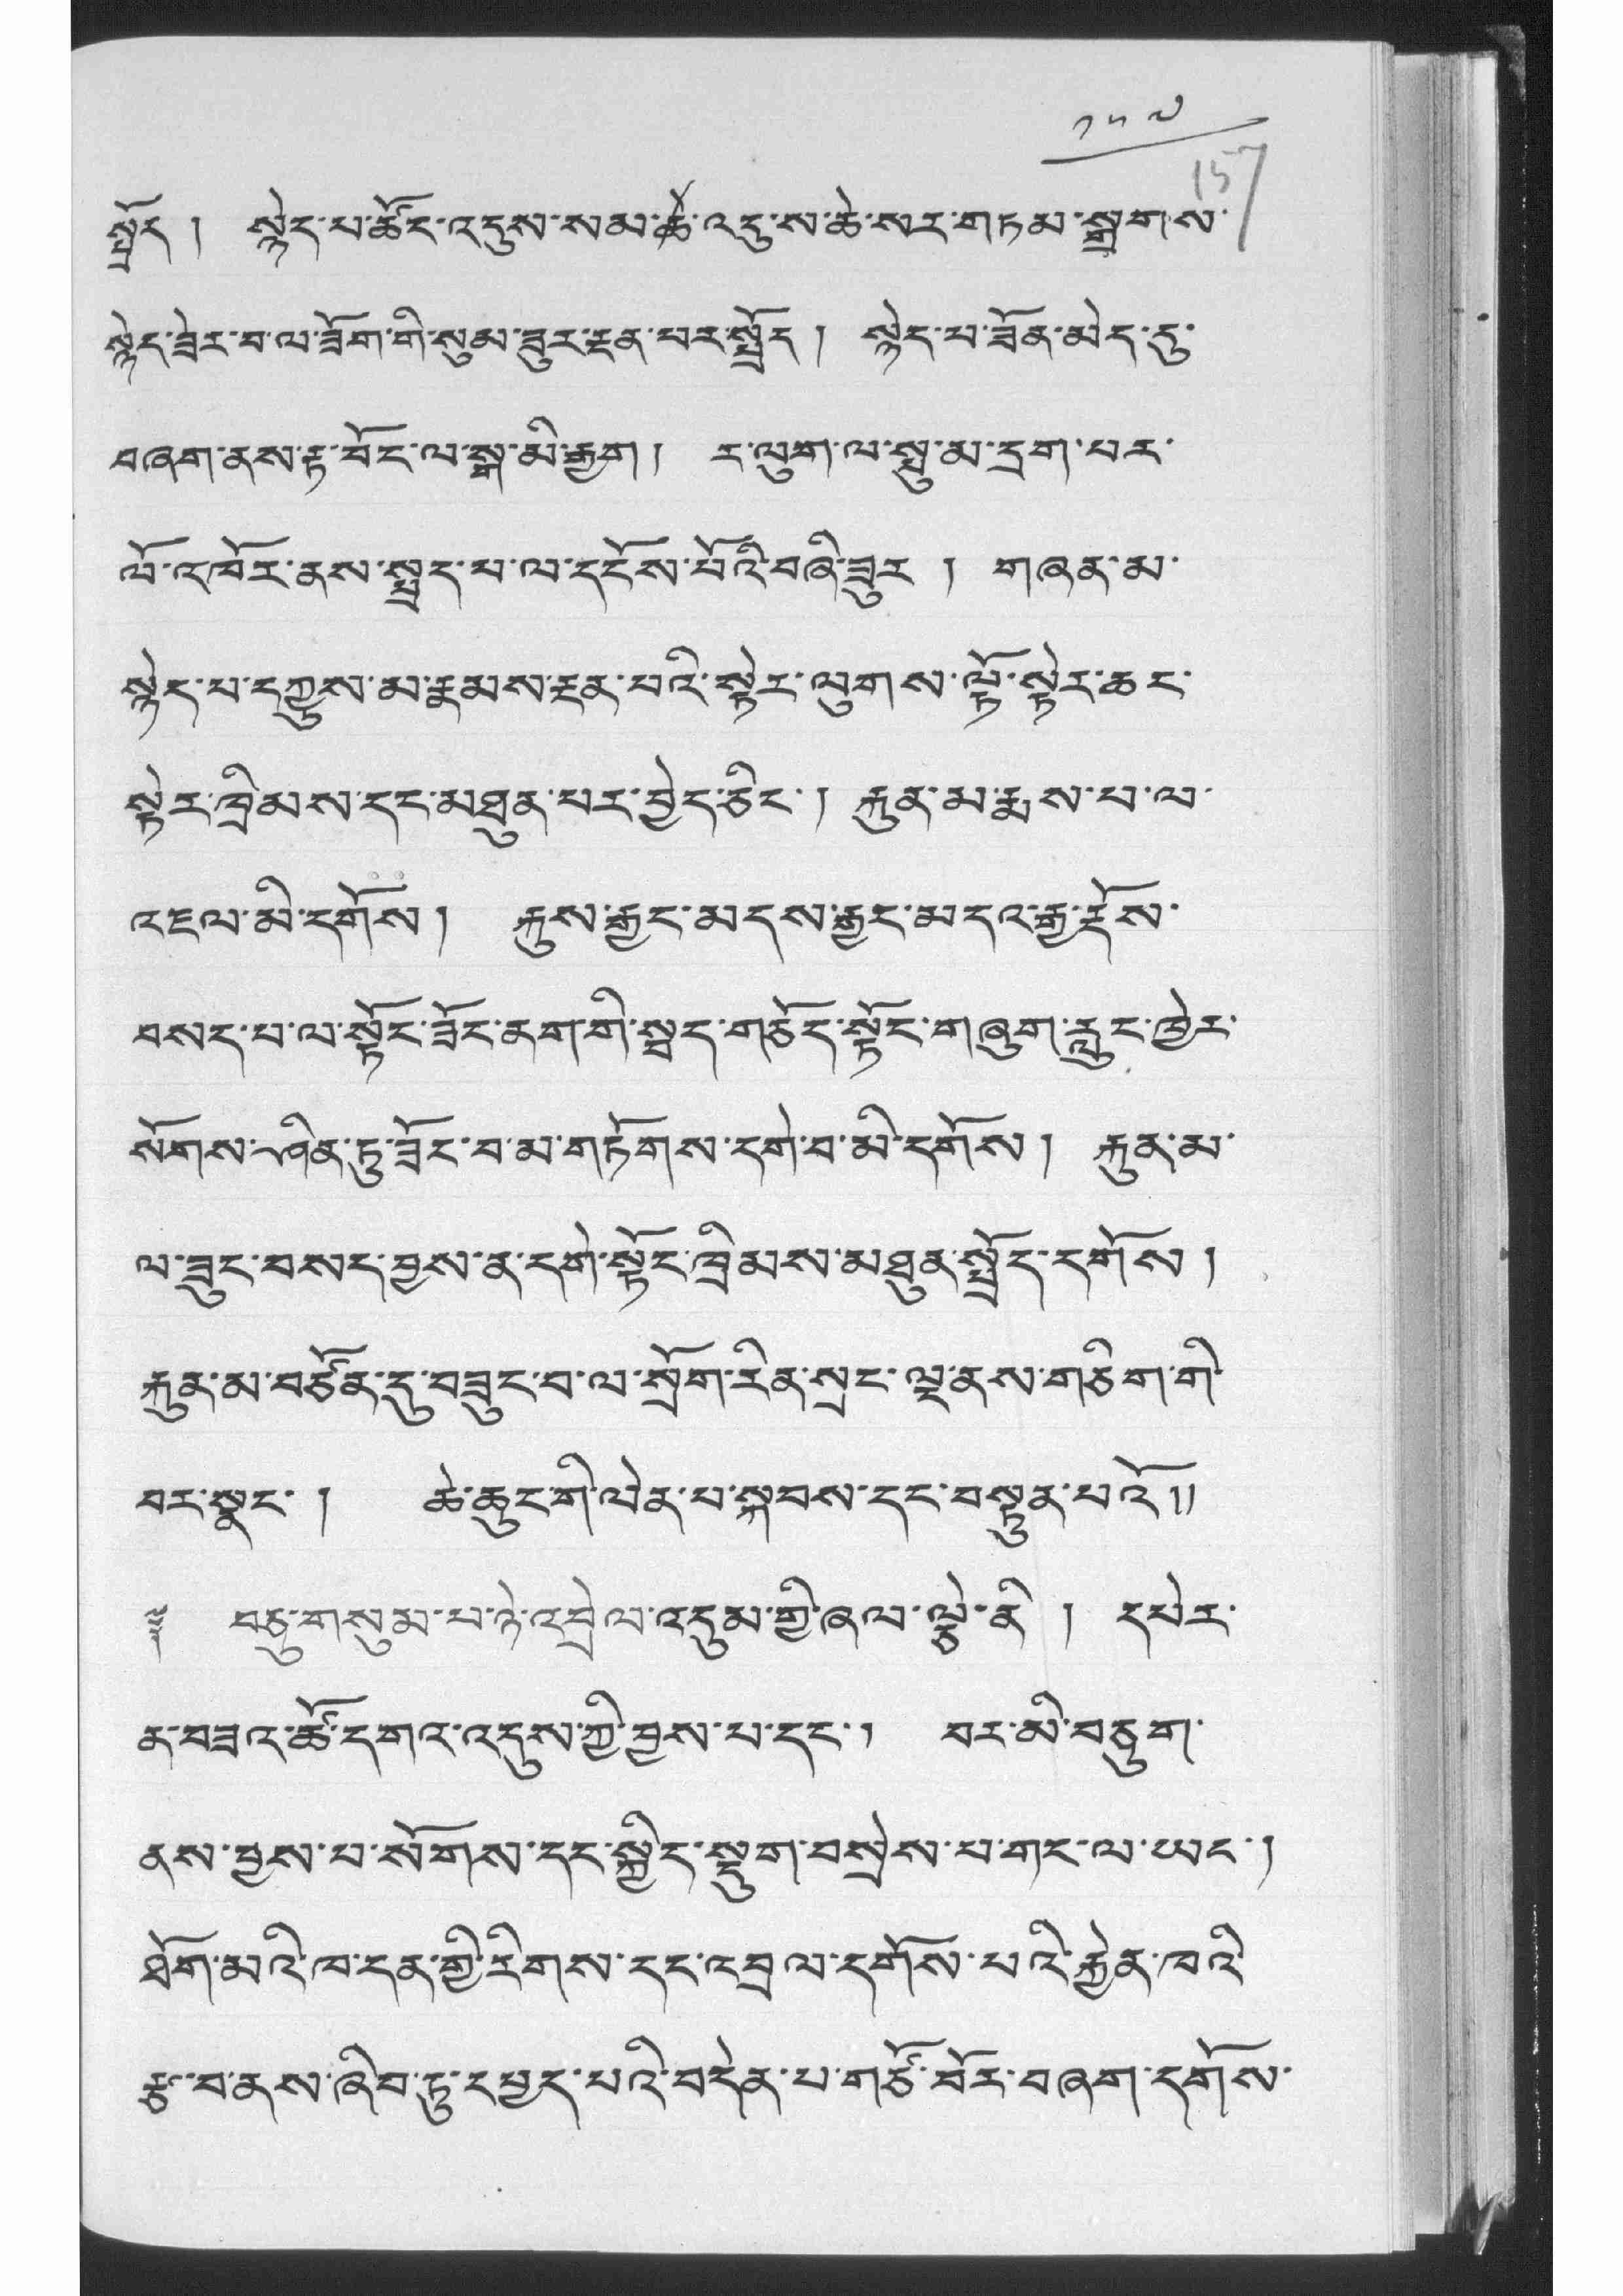 ༡༥༧
157
སྤྲོད། སྙེད་པ་ཚོང་འདུས་སམ་ཆེ་འདུ་ས་ཆེ་སར་གཏམ་སྒྲགས་
སྙེད་ཟེར་བ་ལ་ཟོག་གི་སུམ་ཟུར་རྔན་པར་སྤྲོད། སྙེད་པ་ཟོན་མེད་དུ་
བཞག་ནས་རྟ་བོང་ལ་སྒ་མི་རྒྱག། ར་ལུག་ལ་སྤུ་མ་དྲག་པར་
ལོ་འཁོར་ནས་སྤྲད་པ་ལ་དངོས་པོའི་བཞི་ཟུར། གཞན་མ་
སྙེད་པ་དཀྱུས་མ་རྣམས་རྔན་པའི་སྟེར་ལུགས་ལྟོ་སྟེར་ཆང་
སྟེར་ཁྲིམས་དང་མཐུན་པར་བྱེད་ཅིང་། རྐུན་མ་རྨས་པ་ལ་
འཇལ་མི་དགོས། རྐུས་རྒྱང་མདས་རྒྱང་མདའ་རྒྱ་རྡོས་
བསད་པ་ལ་སྟོང་ཟོང་ནག་གི་སྤྲད་གཅོད་སྟོང་གཞུག་རླུང་ཁྱེར་
སོགས་ཤིན་ཏུ་ཟོང་བ་མ་གཏོགས་དགེ་བ་མི་དགོས། རྐུན་མ་
ལ་ཟུང་བསད་བྱས་ན་དགེ་སྟོང་ཁྲིམས་མཐུན་སྤྲོད་དགོས།
རྐུན་མ་བཙོན་དུ་བཟུང་བ་ལ་སྲོག་རིན་སྲང་ལྔ་ནས་གཅིག་གི་
བར་སྣང་། ཆེ་ཆུང་གི་ལེན་པ་སྐབས་དང་བསྟུན་པའོ༎
༈ བཅུ་གསུམ་པ་ཉེ་འབྲེལ་འདུམ་གྱི་ཞལ་ལྕེ་ནི། དཔེར་
ན་བཟའ་ཚོ་དགའ་འདུས་ཀྱི་བྱས་པ་དང་། བར་མི་བཅུག་
ནས་བྱས་པ་སོགས་དང་སྐྱིད་སྡུག་བསྲེས་པ་གང་ལ་ཡང་།
ཐོག་མའི་ཁ་དན་གྱི་རིགས་དང་འབྲལ་དགོས་པའི་རྐྱེན་ཁའི་
རྩ་བ་ནས་ཞིབ་ཏུ་དཔྱད་པའི་བདེན་པ་གཙོ་བོར་བཞག་དགོས་